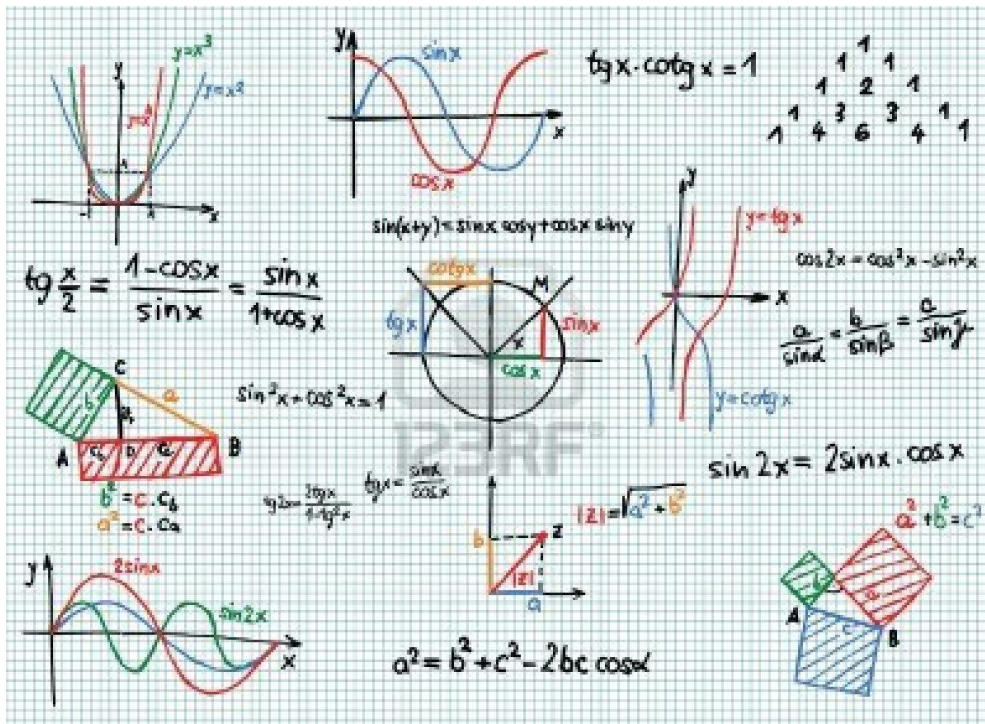 y=x³
y=x²
y
x
-1
1
y
sin x
cos x
x
tg x · cotg x = 1
1
1 1
1 2 1
1 3 3 1
1 4 6 4 1
sin(x+y)=sinx cosy+cosx siny
tg x/2 = 1-cosx/sinx = sinx/1+cosx
cotg x
tg x
M
sin x
x
cos x
y
y=tg x
x
y=cotg x
cos2x = cos²x - sin²x
a/sinα = b/sinβ = c/sinγ
C
b
a
A
D
B
b² = c.c_b
a² = c.c_a
sin²x + cos²x = 1
123RF
tg2x = 2tgx/1-tg²x
tgx = sinx/cosx
sin 2x = 2sinx . cosx
|z| = √a² + b²
b
z
|z|
a
a² + b² = c²
b
a
A
c
B
y
2sinx
sin2x
x
a² = b² + c² - 2bc cosα